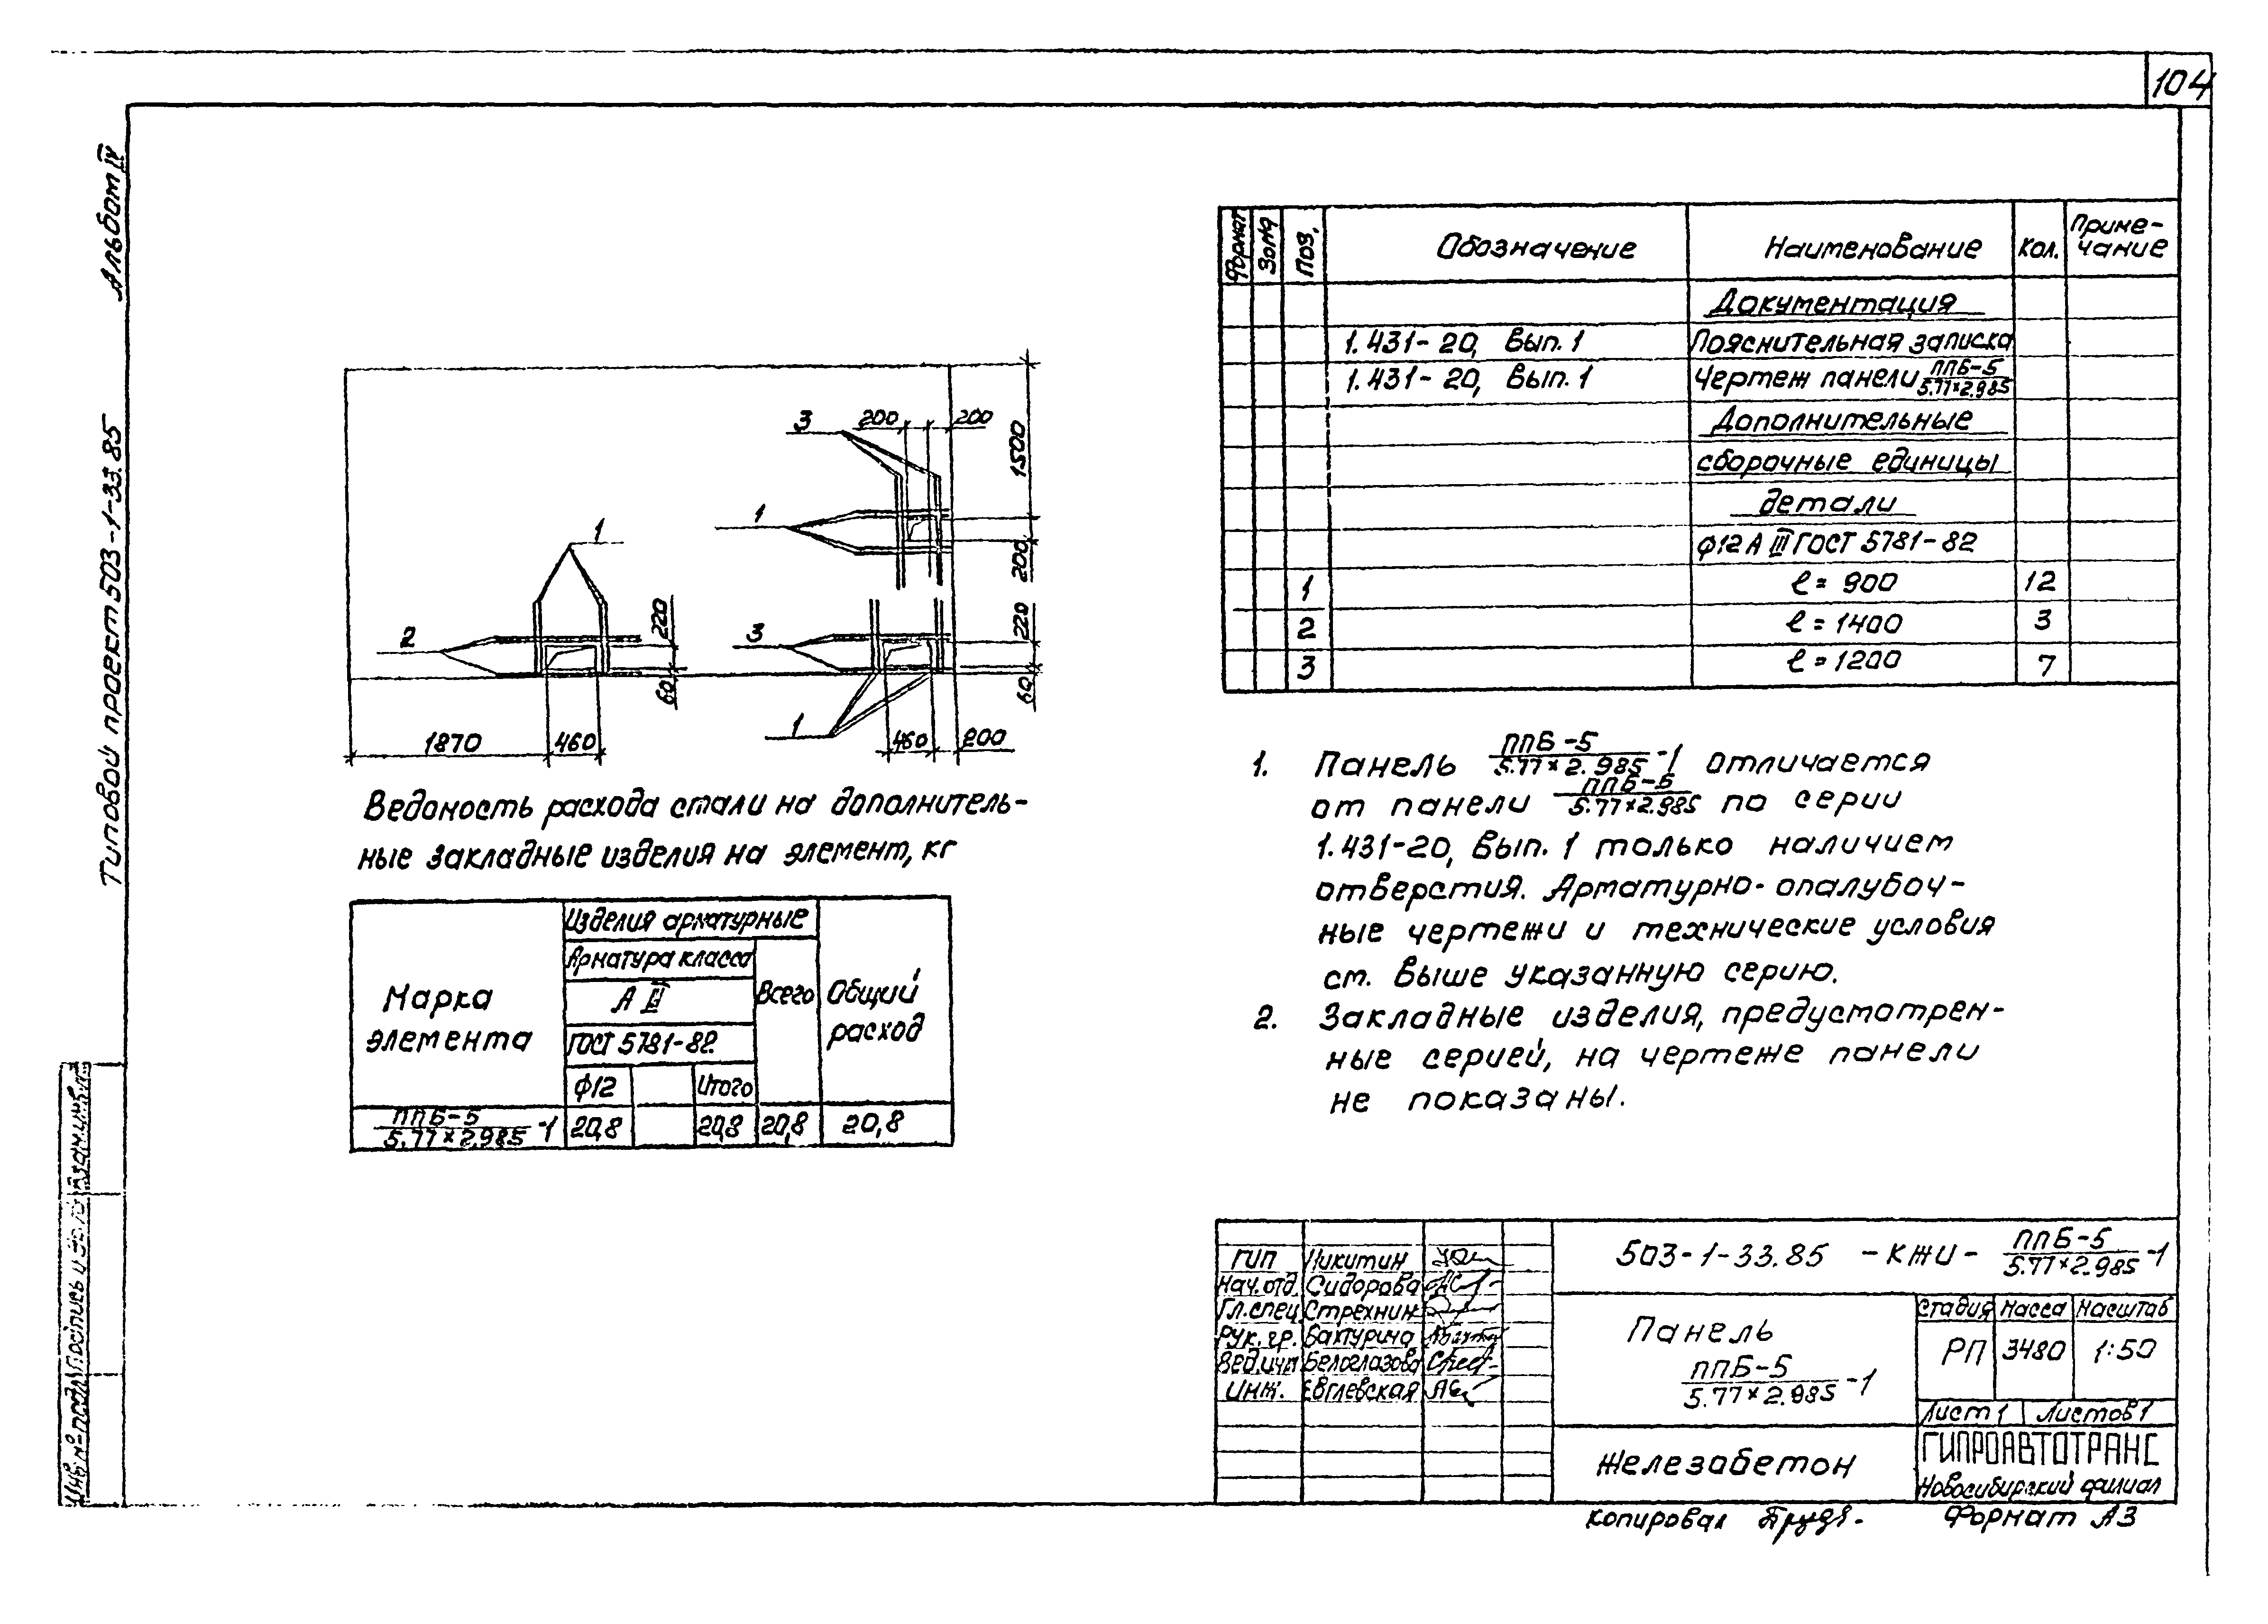 104
Альбом IV
Типовой проект 503-1-33.85
3
200
200
1500
1
200
1
2
220
60
3
220
60
1
1870
460
460
200
Ведомость расхода стали на дополнитель-
ные закладные изделия на элемент, кг
Марка элемента
Изделия арматурные
Арматура класса
А III
ГОСТ 5781-82
Ф12
Итого
Всего
Общий расход
ППБ-5
5.77×2.985 -1
20,8
20,8
20,8
20,8
Формат
Зона
Поз.
Обозначение
Наименование
Кол.
Приме-
чание
Документация
1.431-20, Вып.1 Пояснительная записка
1.431-20, Вып.1 Чертеж панели ППБ-5
5.77×2.985
Дополнительные
сборочные единицы
детали
Ф12 А III ГОСТ 5781-82
1 ℓ= 900 12
2 ℓ=1400 3
3 ℓ=1200 7
1. Панель ППБ-5
5.77×2.985 -1 отличается
от панели ППБ-5
5.77×2.985 по серии
1.431-20, Вып. 1 только наличием
отверстия. Арматурно-опалубоч-
ные чертежи и технические условия
ст. выше указанную серию.
2. Закладные изделия, предусмотрен-
ные серией, на чертеже панели
не показаны.
ГИП Никитин
Нач.отд. Сидорова
Гл.спец Стрехнин
Рук.гр. Бахтурина
Вед.инж Белоглазова
Инж. Евглевская
503-1-33.85 -КЖИ- ППБ-5
5.77×2.985 -1
Панель
ППБ-5
5.77×2.985 -1
Стадия Масса Масштаб
РП 3480 1:50
Лист 1 Листов 1
Железабетон
ГИПРОАВТОТРАНС
Новосибирский филиал
Копировал
Формат А3
Инв.№ подл. Подпись и дата Взам.инв.№